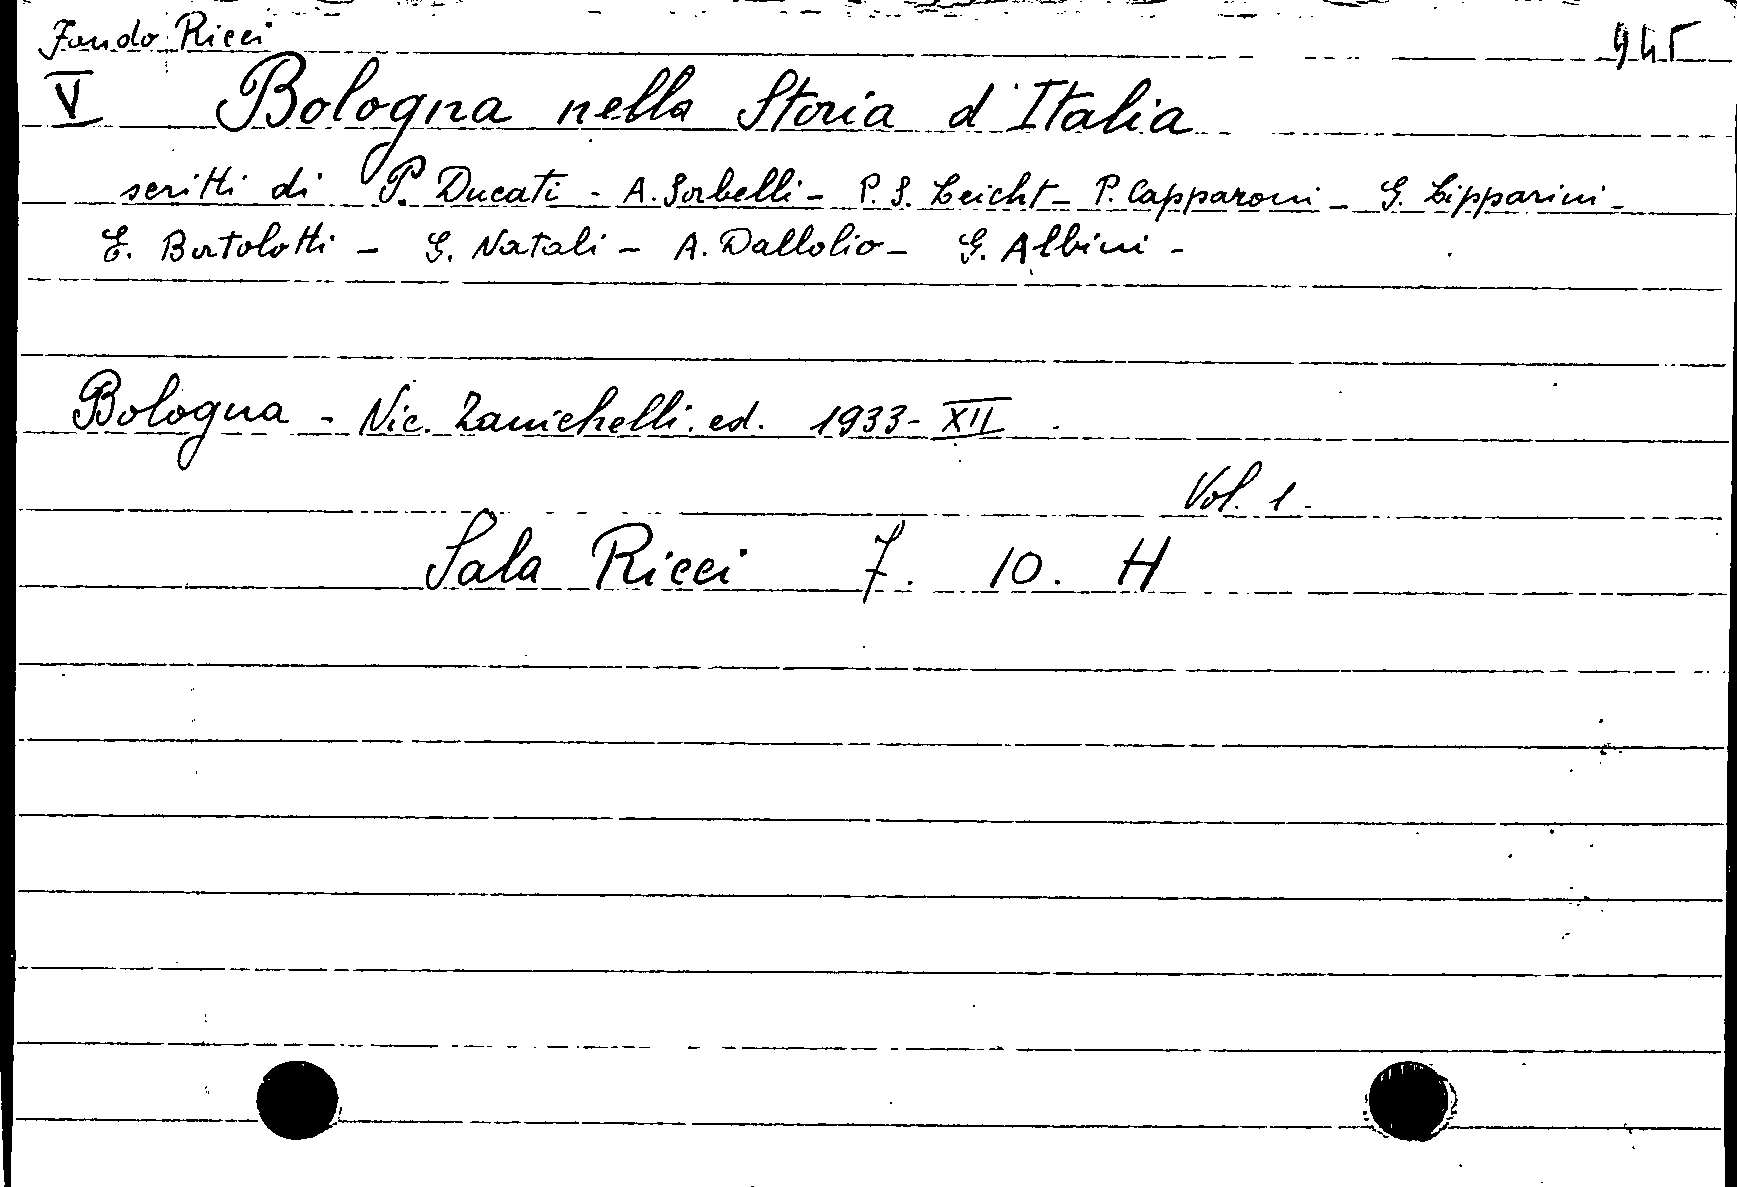 Fondo Ricci 945
V Bologna nella Storia d'Italia
scritti di P. Ducati - A. Sorbelli - P. S. Leicht - P. Capparoni - G. Lipparini -
E. Bertolotti - G. Natali - A. Dallolio - G. Albini -
Bologna - Nic. Zanichelli. ed. 1933 - XII
Vol. 1.
Sala Ricci 7. 10. H